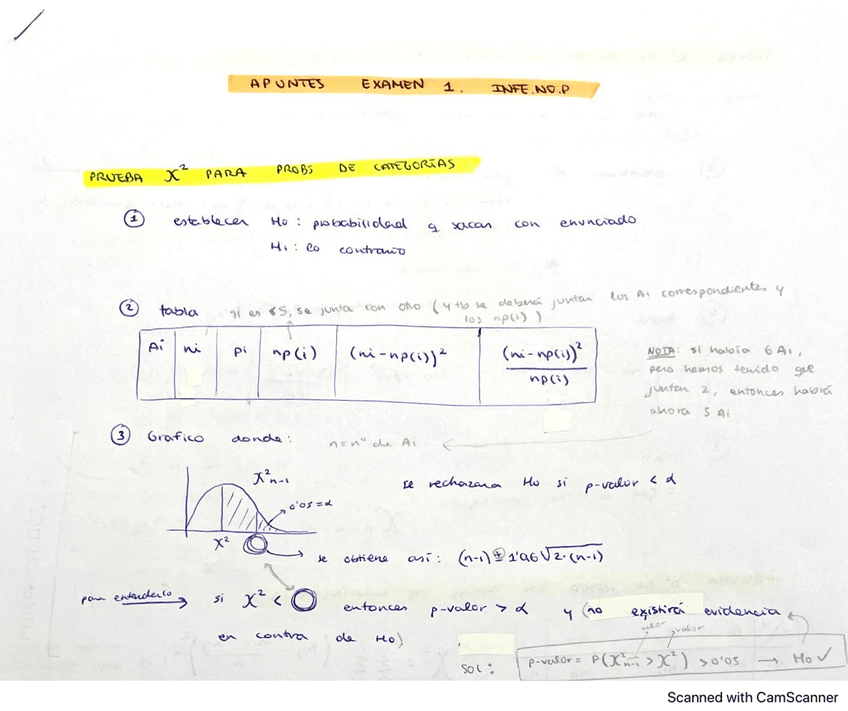 APUNTES EXAMEN 1. INFE.NO.P
PRUEBA X² PARA PROBS DE CATEGORÍAS
① establecer Ho: probabilidad q sacas con enunciado
H₁: lo contrario
② tabla si es <5, se junta con otro (y tb se deberá juntar los Ai correspondientes y
los np(i))
Ai ni pi np(i) (ni-np(i))² (ni-np(i))²/np(i)
NOTA: si había 6 Ai,
pero hemos tenido que
juntar 2, entonces habrá
ahora 5 Ai
③ Gráfico donde: n=nº de Ai
X²n-1
0'05=α
X²
se rechazará Ho si p-valor < α
se obtiene así: (n-1) ± 1'96√2·(n-1)
para entenderlo → si X² < ○ entonces p-valor > α y (no existirá evidencia
en contra de Ho)
valor valor
SOL: p-valor = P(X²n-1 > X²) > 0'05 → Ho ✓
Scanned with CamScanner